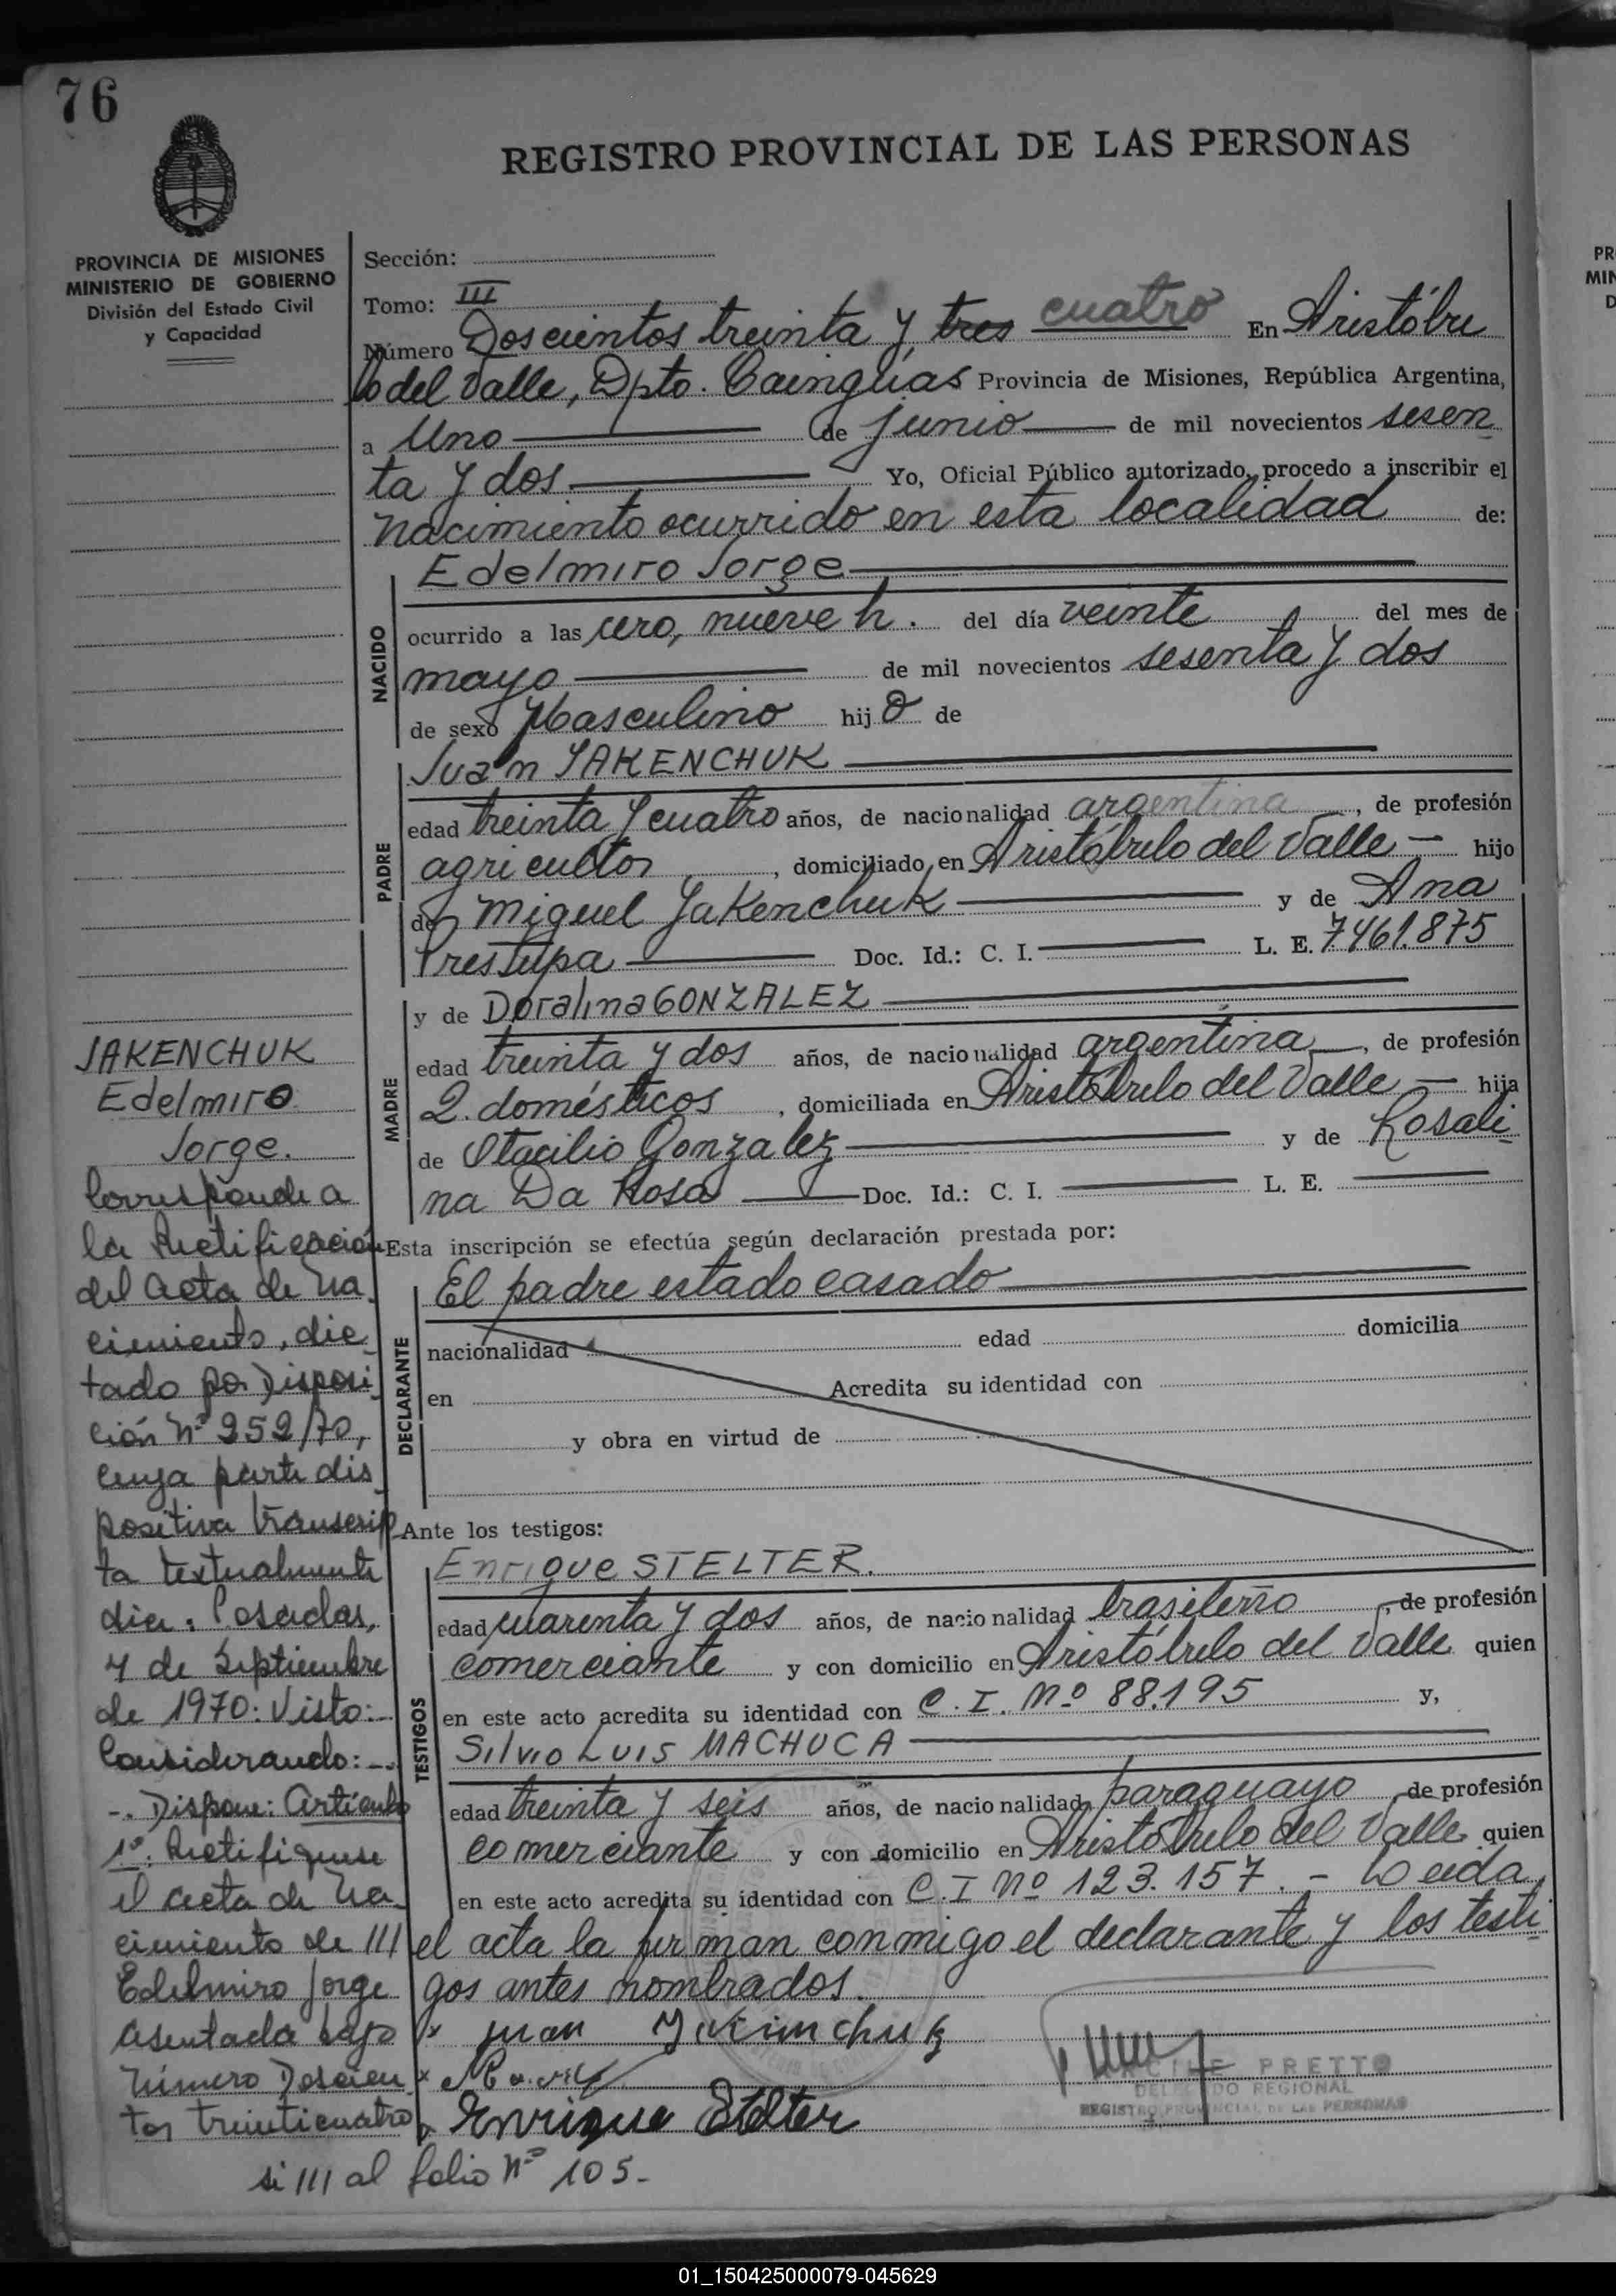 76
REGISTRO PROVINCIAL DE LAS PERSONAS
PROVINCIA DE MISIONES
MINISTERIO DE GOBIERNO
División del Estado Civil
y Capacidad
Sección:
Tomo: III
Número Doscientos treinta y tres cuatro En Aristóbu
lo del Valle, Dpto. Cainguas Provincia de Misiones, República Argentina,
a Uno de junio de mil novecientos sesen
ta y dos. Yo, Oficial Público autorizado, procedo a inscribir el
nacimiento ocurrido en esta localidad de:
Edelmiro Jorge
NACIDO
ocurrido a las cero, nueve h. del día veinte del mes de
mayo de mil novecientos sesenta y dos
de sexo Masculino hijo de
Juan JAKENCHUK
PADRE
edad treinta y cuatro años, de nacionalidad argentina, de profesión
agricultor, domiciliado en Aristóbulo del Valle - hijo
de Miguel Jakenchuk y de Ana
Prestupa Doc. Id.: C. I. L. E. 7461.875
y de Doralina GONZALEZ
MADRE
edad treinta y dos años, de nacionalidad argentina, de profesión
Q. domésticos, domiciliada en Aristóbulo del Valle - hija
de Otacilio Gonzalez y de Rosali
na Da Rosa Doc. Id.: C. I. L. E.
Esta inscripción se efectúa según declaración prestada por:
El padre estado casado
DECLARANTE
nacionalidad edad domicilia
en Acredita su identidad con
y obra en virtud de
Ante los testigos:
Enrique STELTER.
TESTIGOS
edad cuarenta y dos años, de nacionalidad brasileño, de profesión
comerciante y con domicilio en Aristóbulo del Valle quien
en este acto acredita su identidad con C. I. Nº 88.195 y,
Silvio LUIS MACHUCA
edad treinta y seis años, de nacionalidad paraguayo, de profesión
comerciante y con domicilio en Aristóbulo del Valle quien
en este acto acredita su identidad con C. I Nº 123.157. - Leida
el acta la firman conmigo el declarante y los testi
gos antes nombrados.
x Juan Jakimchuk
x
x Enrique Stelter
PRETTO
DELEGADO REGIONAL
REGISTRO PROVINCIAL DE LAS PERSONAS
JAKENCHUK
Edelmiro
Jorge.
Corresponde a
la Rectificación
del Acta de Na
cimiento, dic
tado por Disposi
ción Nº 252/70,
cuya parte dis
positiva transcrip
ta textualmente
dice: Posadas,
4 de Septiembre
de 1970: Visto:-
Considerando: -.
-. Dispone: Artículo
1º: Rectifíquese
el acta de Na
cimiento de ///
Edelmiro Jorge
asentada bajo
Número Doscien
tos treinticuatro
si /// al folio Nº 105-
01_150425000079-045629